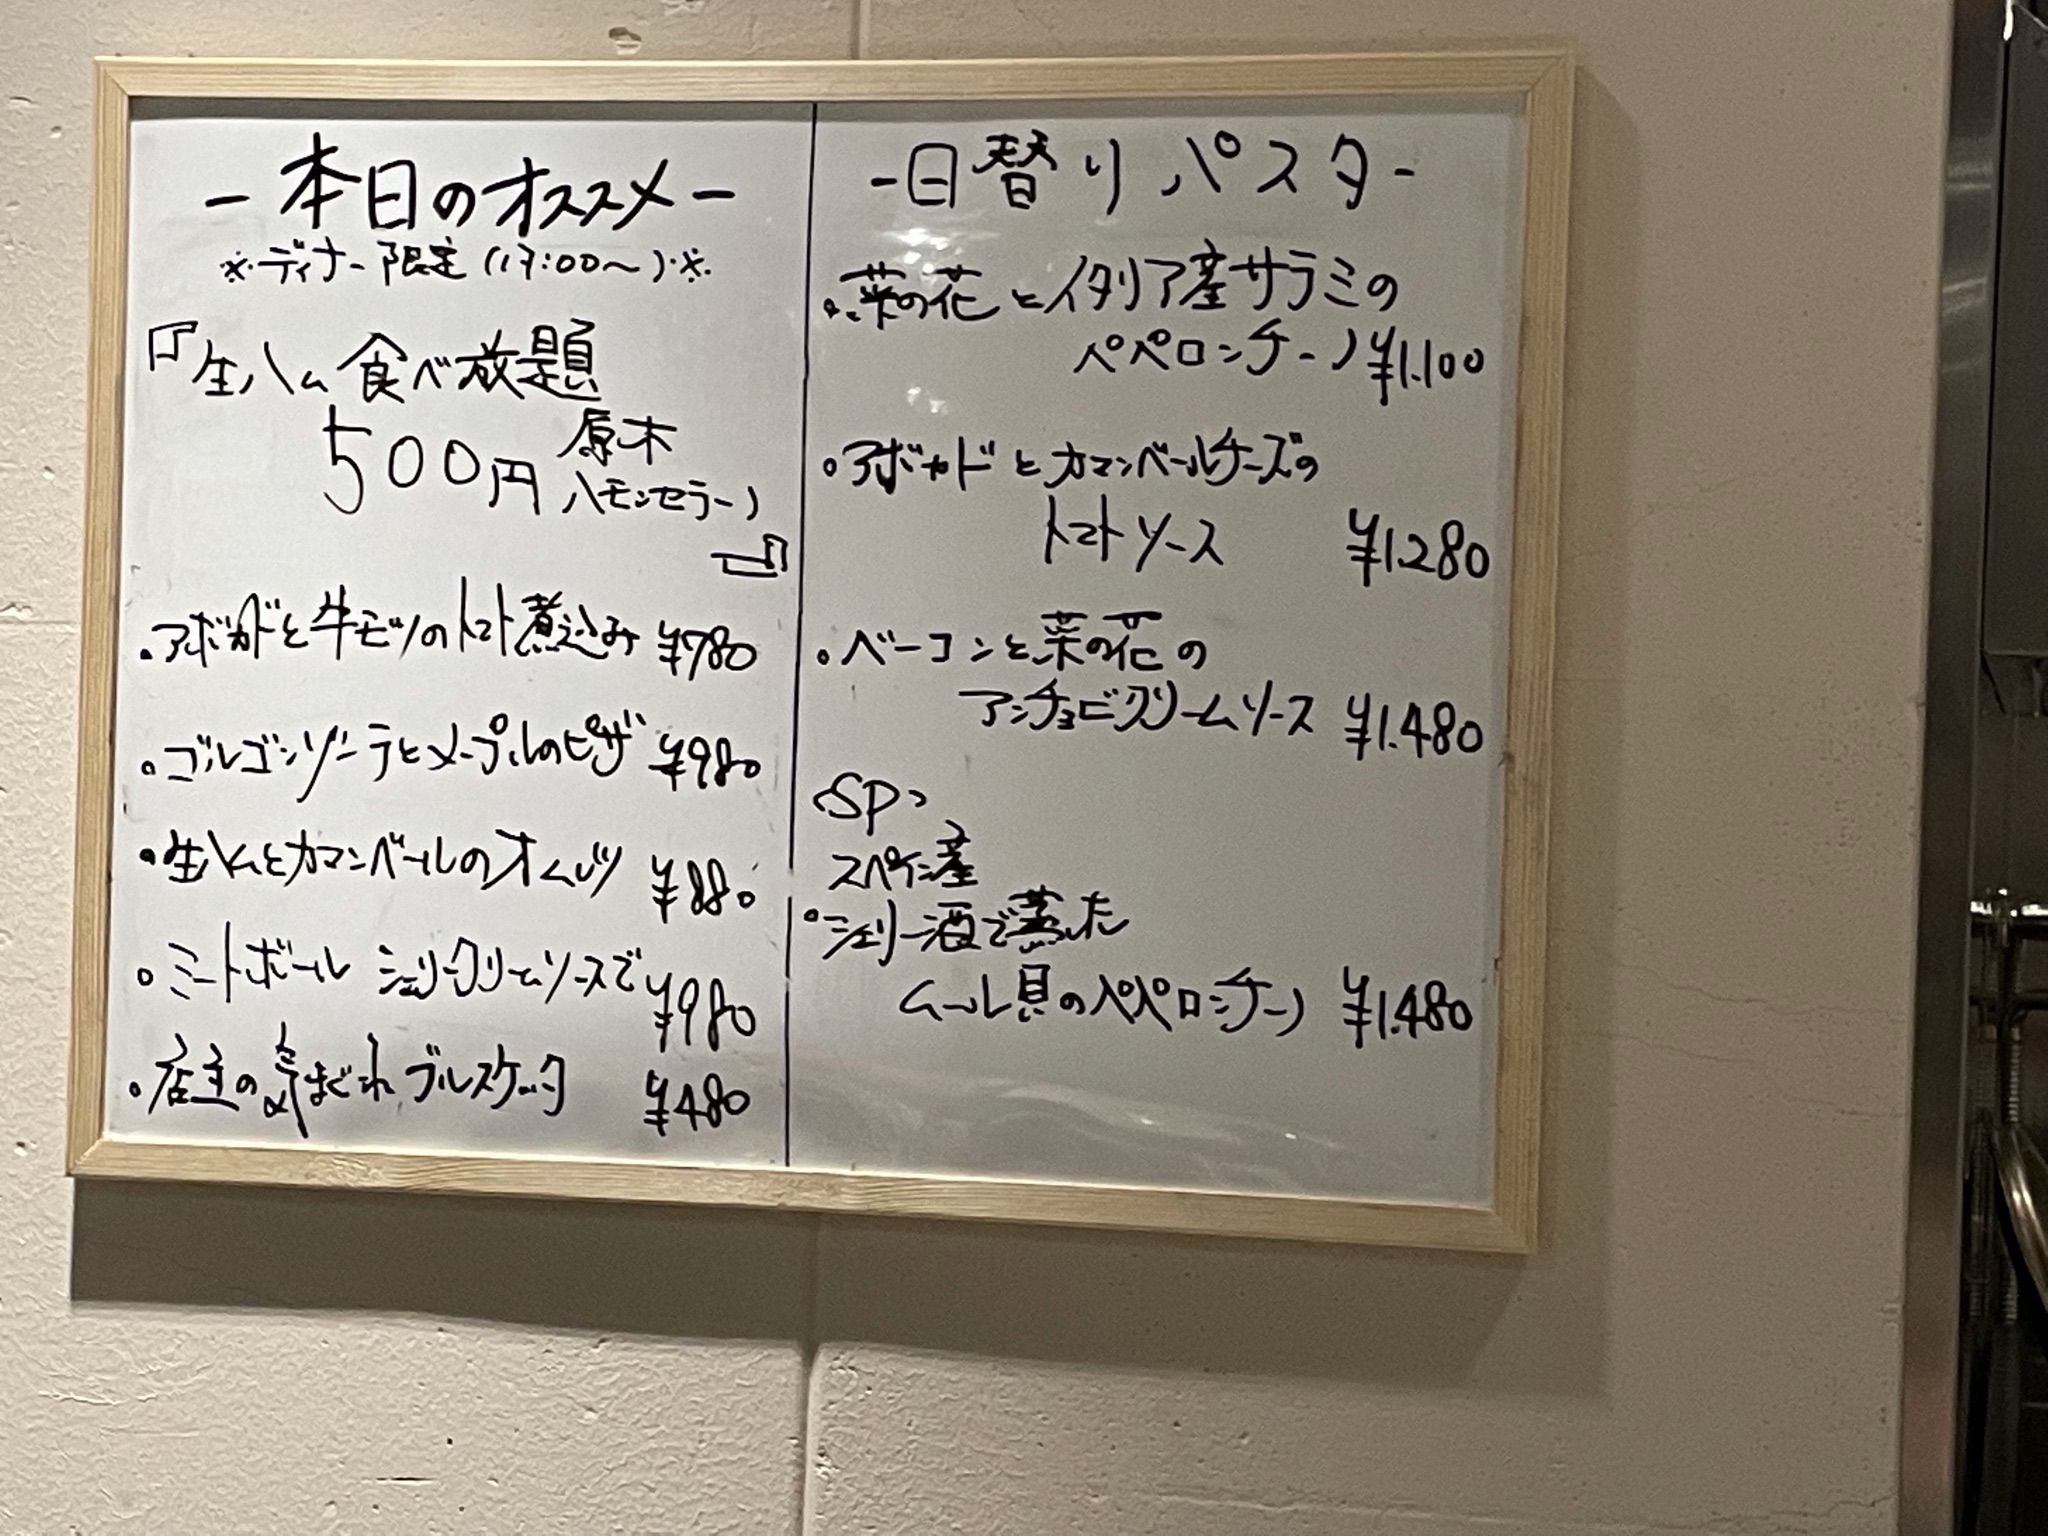 -本日のオススメ-
※ディナー限定(17:00〜)※
『生ハム食べ放題
500円 原木
ハモンセラーノ
』
・アボカドと牛モツのトマト煮込み ¥780
・ゴルゴンゾーラとメープルのピザ ¥980
・生ハムとカマンベールのオムレツ ¥880
・ミートボール シェリークリームソースで ¥980
・店主の気まぐれブルスケッタ ¥480
-日替りパスタ-
・菜の花とイタリア産サラミの
ペペロンチーノ ¥1.100
・アボカドとカマンベールチーズの
トマトソース ¥1.280
・ベーコンと菜の花の
アンチョビクリームソース ¥1.480
<SP>
スペイン産
・シェリー酒で蒸した
ムール貝のペペロンチーノ ¥1.480